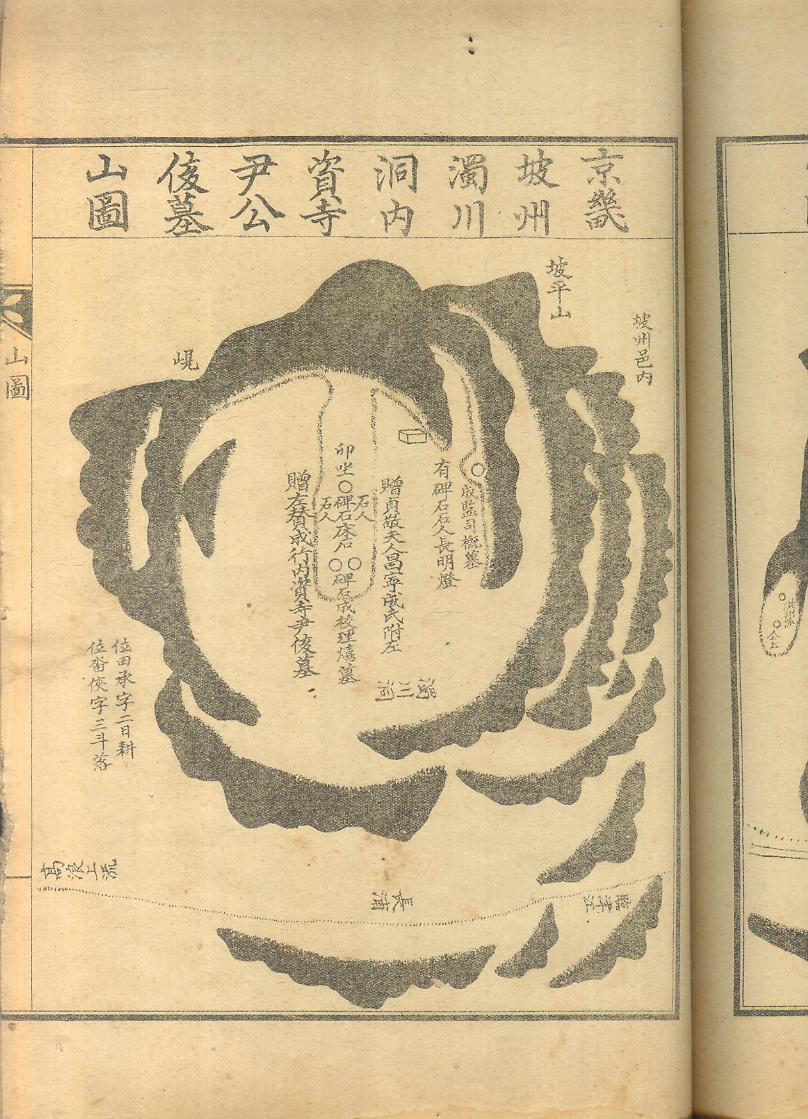 京畿
坡州
濁川
洞内
資寺
尹公
俊墓
山圖
坡州邑内
坡平山
峴
成監司概墓
有碑石石人長明燈
贈貞敬夫人昌寧成氏附左
石人
卯坐 碑石床石 碑石成校理熺墓
石人
贈左贊成行内資寺尹俊墓
濁川洞
位田承字二日耕
位畓俠字三斗落
臨津江
長浦
高浪上流
山圖
仝上